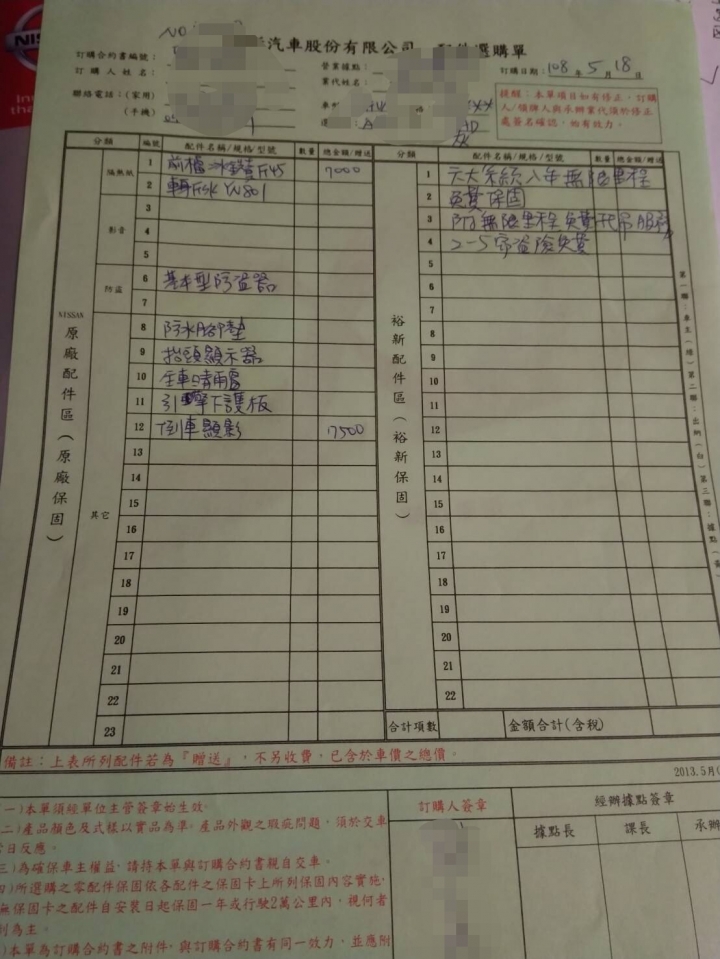 NISSAN
NO
汽車股份有限公司 配件選購單
訂購合約書編號：
營業據點：
訂購日期：108年5月18日
訂購人姓名：
業代姓名：
聯絡電話：(家用)
(手機)
提醒：本單項目如有修正，訂購
人/領牌人與承辦業代須於修正
處簽名確認，始有效力。
分類 編號 配件名稱/規格/型號 數量 總金額/贈送
隔熱紙
1 前檔冰鑽 7000
2 車身FSK
3
影音
4
5
防盜
6 基本型防盜器
7
NISSAN
原廠配件區(原廠保固)
8 防水腳墊
9 抬頭顯示器
10 全車晴雨窗
11 引擎下護板
12 倒車顯影 7500
13
14
15
其它
16
17
18
19
20
21
22
23
分類 配件名稱/規格/型號 數量 總金額/贈送
1 六大系統八年無限里程
2 免費保固
3 附無限里程免費拖吊服務
4 2-5年盜險免費
5
6
7
裕新配件區(裕新保固)
8
9
10
11
12
13
14
15
16
17
18
19
20
21
22
合計項數 金額合計(含稅)
第一聯：車主(綠) 第二聯：出納(白) 第三聯：據點
備註：上表所列配件若為『贈送』，不另收費，已含於車價之總價。
2013.5月
一)本單須經單位主管簽章始生效。
二)產品顏色及式樣以實品為準。產品外觀之瑕疵問題，須於交車
日反應。
三)為確保車主權益，請持本單與訂購合約書親自交車。
四)所選購之零配件保固依各配件之保固卡上所列保固內容實施，
無保固卡之配件自安裝日起保固一年或行駛2萬公里內，視何者
到為主。
)本單為訂購合約書之附件，與訂購合約書有同一效力，並應附
訂購人簽章
經辦據點簽章
據點長 課長 承辦